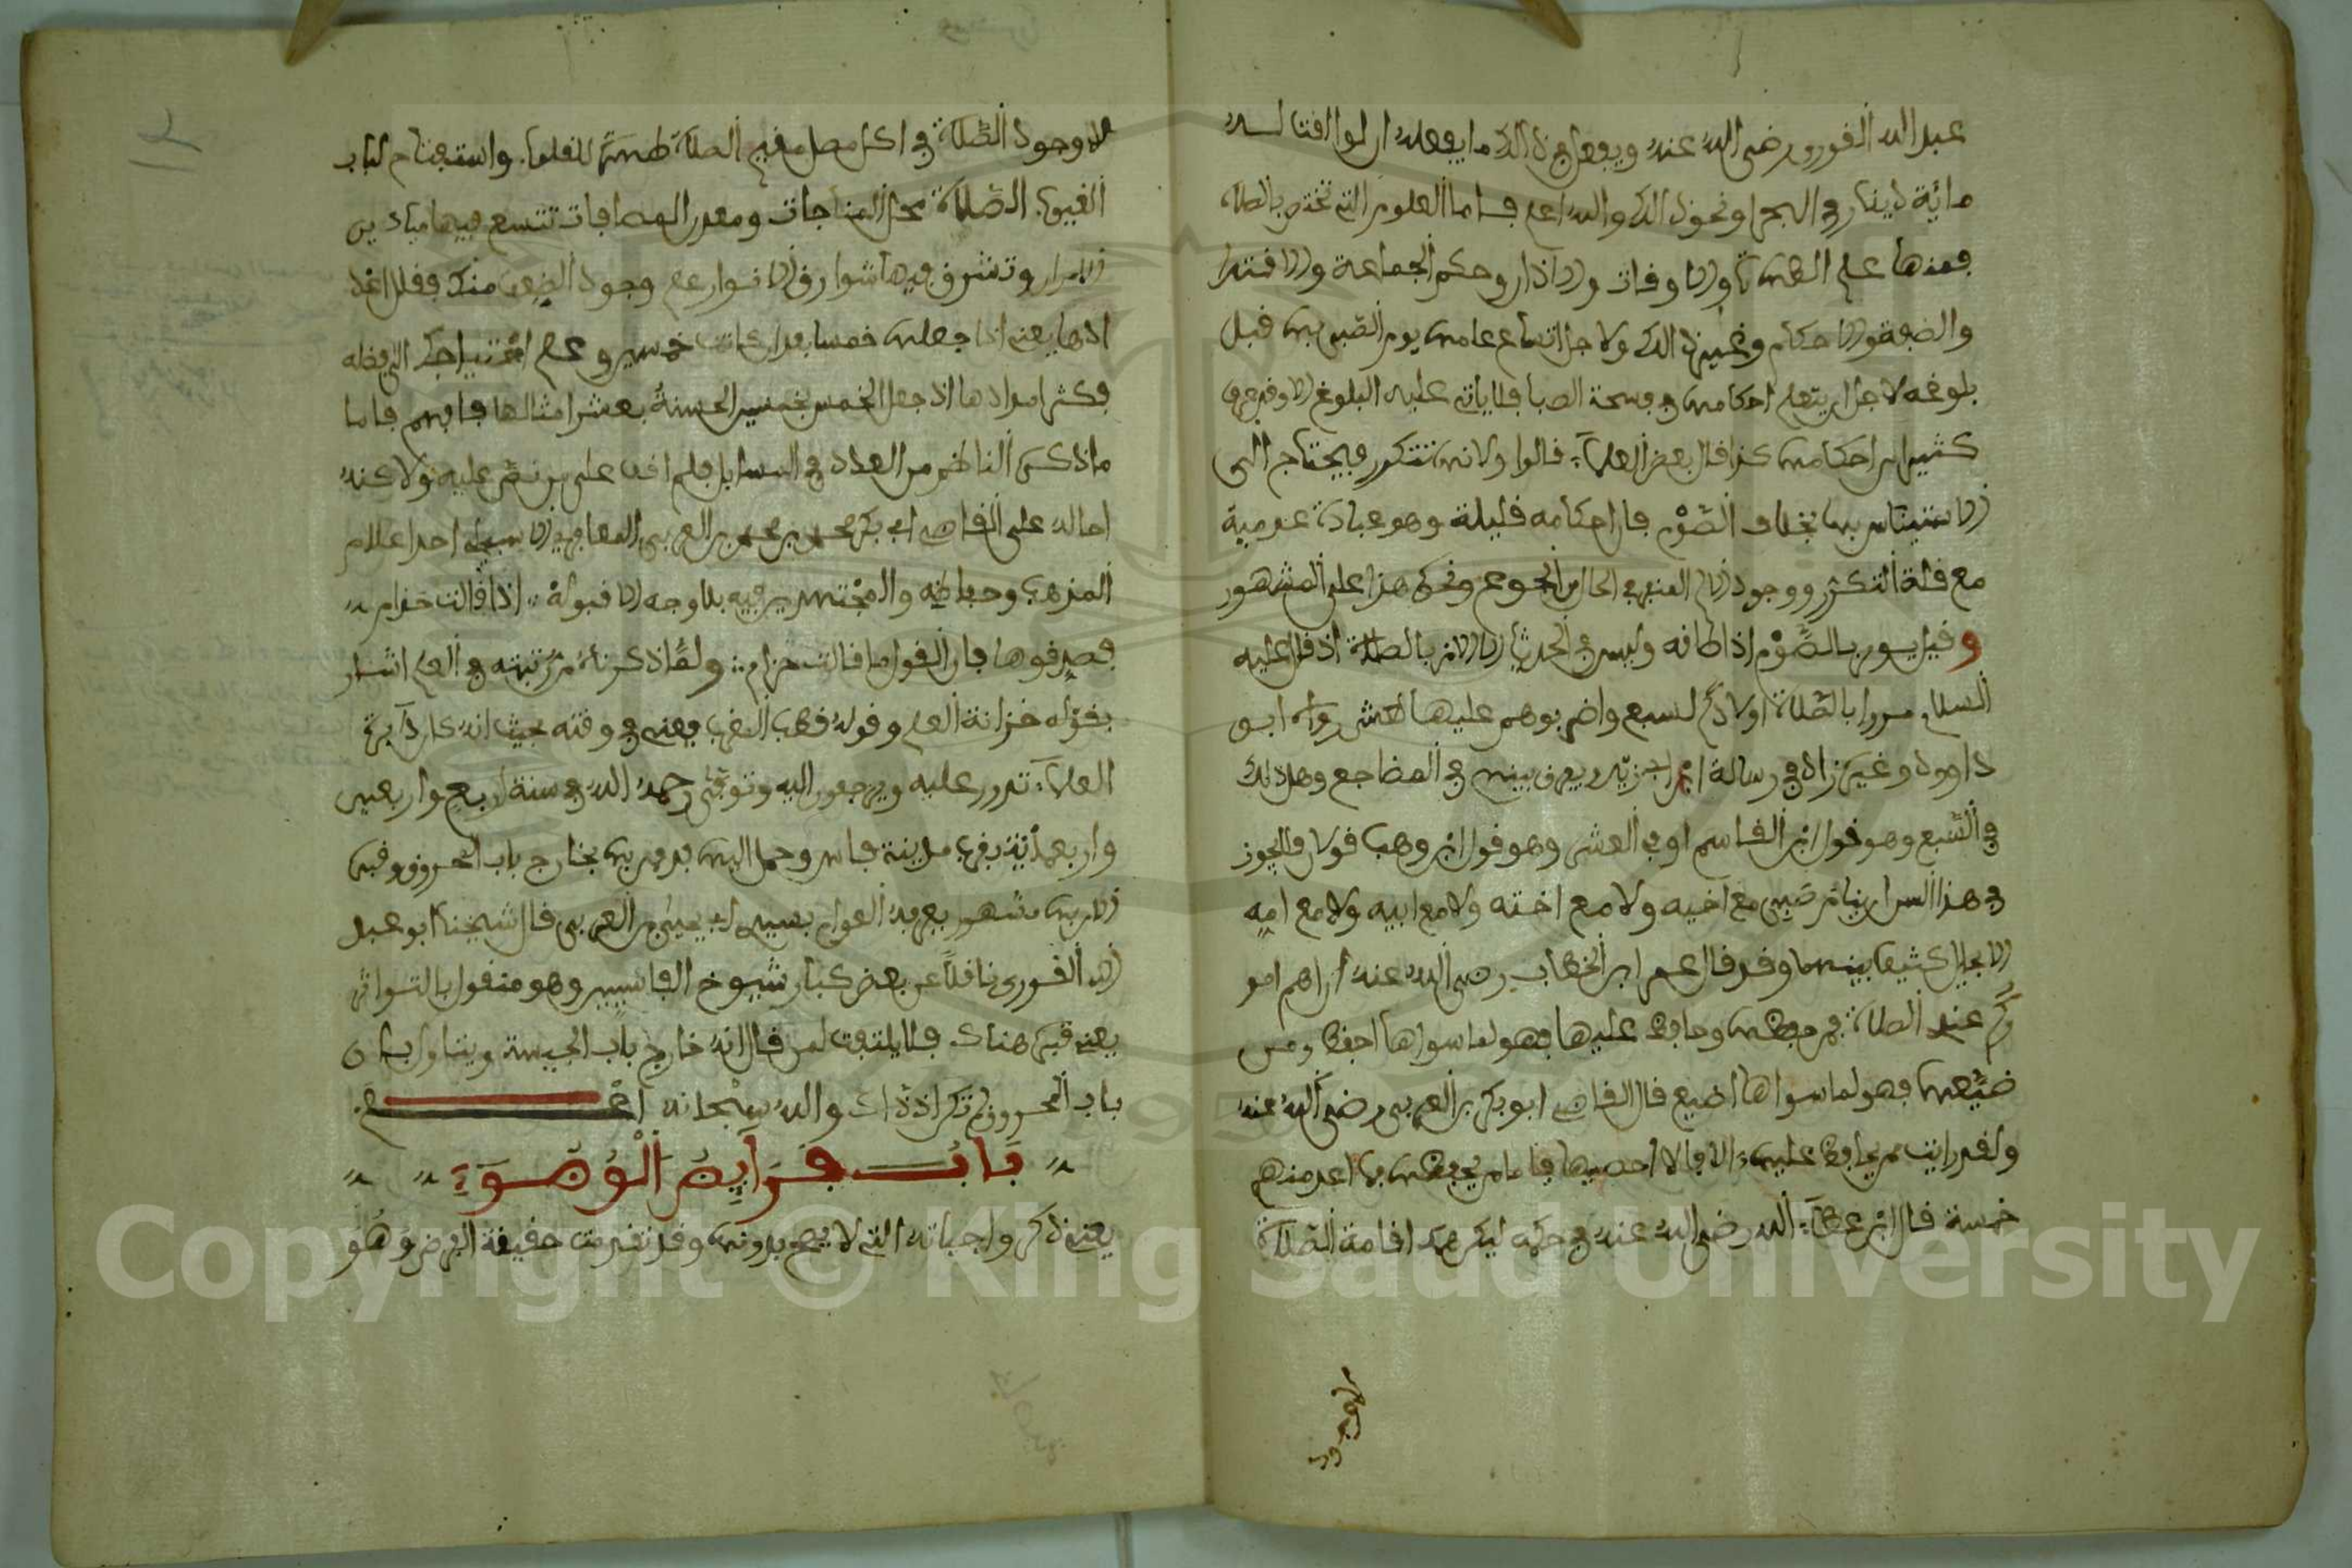 عبد الله القوري رضي الله عنه ويفعل في ذلك ما يفعله ان لو افتا لسد
مائة دينار في البحر او نحو ذلك والله اعلم فاما العلوم التي تختص بالصلاة
فمنها علم الطهارة والاوقات والاذان وحكم الجماعة والاقتدا
والصفة والاحكام وغير ذلك ولاجل اتساع علمها يومر الصبي بها قبل
بلوغه لاجل ان يتعلم احكامها في فسحة الصبا فلا ياتي عليه البلوغ الا وقد عرف
كثيرا من احكامها كذا قال بعض العلماء قالوا ولانها تتكرر فيحتاج الى
الاستيناس بها بخلاف الصوم فان احكامه قليلة وهو عبادة عدمية
مع قلة التكرر ووجود الم الصبي في الحال من الجوع ونحوه هذا على المشهور
وقيل يومر بالصوم اذا اطاقه وليس في الحديث الا الامر بالصلاة اذ قال عليه
السلام مروا بالصلاة اولادكم لسبع واضربوهم عليها لعشر رواه ابو
داوود وغيره زاد في رسالة ابن ابي زيد ويفرق بينهم في المضاجع وهل ذلك
في السبع وهو قول ابن القاسم او في العشر وهو قول ابن وهب قولان فلا يجوز
في هذا السن ان ينام صبي مع اخيه ولا مع اخته ولا مع ابيه ولا مع امه
الا بحايل كثيف بينهما وقد قال عمر ابن الخطاب رضي الله عنه ان اهم امو
ركم عندي الصلاة فمن حفظها وحافظ عليها فهو لما سواها احفظ ومن
ضيعها فهو لما سواها اضيع قال القاضي ابو بكر بن العربي رضي الله عنه
ولقد رايت من يحافظ عليها الافا لا احصيها فاما من يحفظها فما اعد منهم
خمسة قال ابن عطاء الله رضي الله عنه في حكمه ليكن همك اقامة الصلاة
لا وجود
لا وجود الصلاة فما كل مصل مقيم الصلاة طهرة للقلوب واستفتاح لباب
الغيوب الصلاة محل المناجات ومعدن المصافات تتسع فيها ميادين
الاسرار وتشرق فيها شوارق الانوار علم وجود الضعف منك فقلل اعدا
ادها يعني اذ جعلها خمسا بعد ان كانت خمسين وعلم احتياجك الى فضله
فكثر امدادها اذ جعل الخمس بخمسين الحسنة بعشر امثالها فافهم فاما
ما ذكره الناظم من العدد في المسايل فلم اقف على من نص عليه ولاكنه
احاله على القاضي ابي بكر محمد بن العربي المعافري الاشبيلي احد اعلام
المذهب وحفاظه والمجتهدين فيه بلا وجه الا قبوله اذا قالت حذام
فصدقوها فان القول ما قالت حذام ولما ذكرناه مرتبته في العلم اشار
بقوله خزانة العلم وقوله قطب المغرب يعني في وقته بحيث انه كان دايرة
العلماء تدور عليه ويرجعون اليه وتوفي رحمه الله في سنة اربع واربعين
واربعمائة بقرب مدينة فاس وحمل اليها فدفن بها بخارج باب المحروق وقبره
الان بها مشهور يعرفه العوام بسيدي ابي يحيى بن العربي قال شيخنا ابو عبد
الله القوري ناقلا عن بعض كبار شيوخ الفاسيين وهو منقول بالتواتر
يعني قبره هناك فلا يلتفت لمن قال انه خارج باب الجيسة ويتناول بان
باب المحروق لم تكن اذ ذاك والله سبحانه اعلم
باب فرايض الوضوء
يعني ذكر واجباته التي لا يصح بدونها وقد تقدمت حقيقة الفرض وهو
Copyright © King Saud University
1957